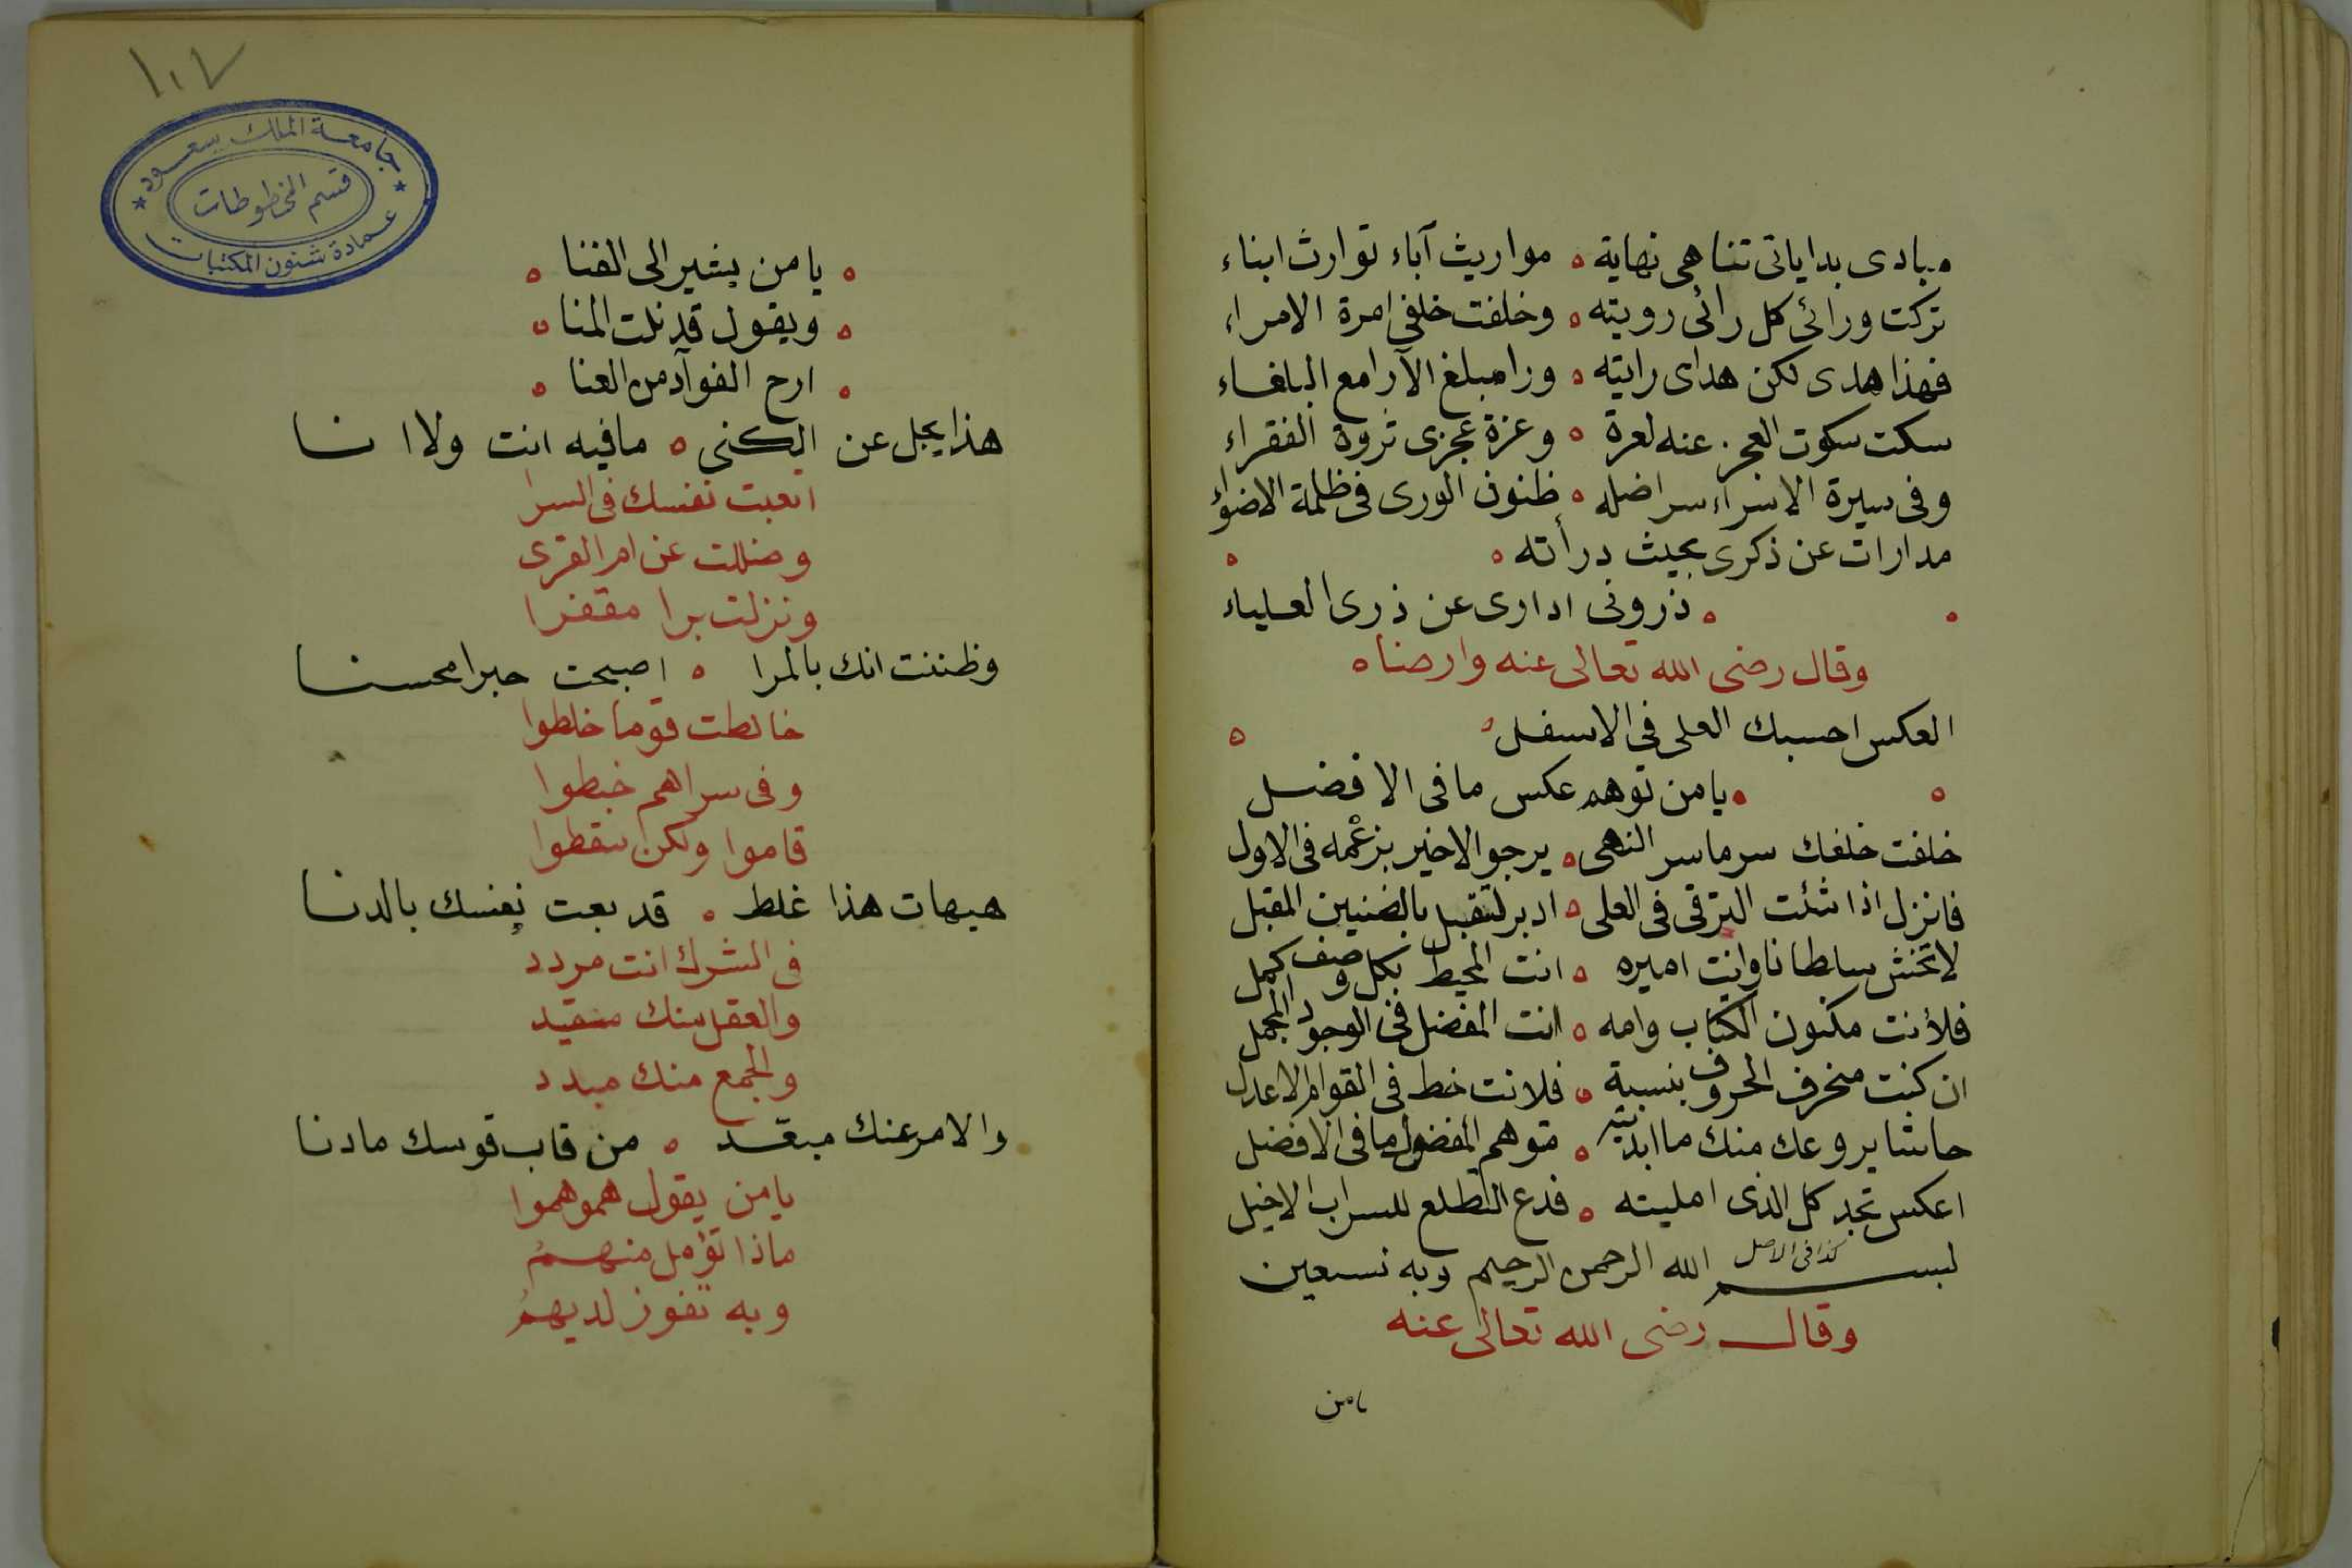 مبادى بداياتى تناهى نهاية ه مواريث آباء توارث ابناء
تركت ورائى كل رائى رويته ه وخلفت خلفى امرة الامراء
فهذا هدى لكن هداى رايته ه ورا مبلغ الآرا مع البلغاء
سكت سكوت العجز عنه لعزة ه وعزة عجزى ثروة الفقراء
وفى سيرة الاسراء سر اضله ه ظنون الورى فى ظلمة الاضواء
مدارات عن ذكرى بحيث درأته ه ه
ه ه ذرونى ادارى عن ذرى العلياء
وقال رضى الله تعالى عنه وارضاه
العكس احسبك العلى فى الاسفل ه ه
ه ه يا من توهم عكس ما فى الافضل
خلفت خلفك سر ما سر النهى ه يرجو الاخير بزعْمه فى الاول
فانزل اذا شئت الترقى فى العلى ه ادبر لتقبل بالضنين المقبل
لا تخش سلطانا وانت اميره ه انت المحيط بكل وصف كمل
فلأنت مكنون الكتاب وامه ه انت المفضل فى الوجود المجمل
ان كنت منحرف الحروف بنسبة ه فلانت خط فى القوام الاعدل
حاشا يروعك منك ما ابديته ه متوهم المفضول ما فى الافضل
اعكس تجد كل الذى امليته ه فدع التطلع للسراب الاخيل
كذا فى الاصل
بسم الله الرحمن الرحيم وبه نستعين
وقال رضى الله تعالى عنه
يا من
١٠٧
جامعة الملك سعود
قسم المخطوطات
عمادة شئون المكتبات
ه يا من يشير الى الفنا ه
ه ويقول قد نلت المنا ه
ه ارح الفوآد من العنا ه
هذا يجل عن الكنى ه ما فيه انت ولا انا
اتعبت نفسك فى السرا
وضللت عن ام القرى
ونزلت برا مقفرا
وظننت انك بالمرا ه اصبحت حبرا محسنا
خالطت قوما خلطوا
وفى سراهم خبطوا
قاموا ولكن سقطوا
هيهات هذا غلط ه قد بعت نفسك بالدنا
فى الشرك انت مردد
والعقل منك مقيد
والجمع منك مبدد
والامر عنك مبعّد ه من قاب قوسك ما دنا
يا من يقول همو همو
ماذا تؤمل منهمُ
وبه تفوز لديهمُ